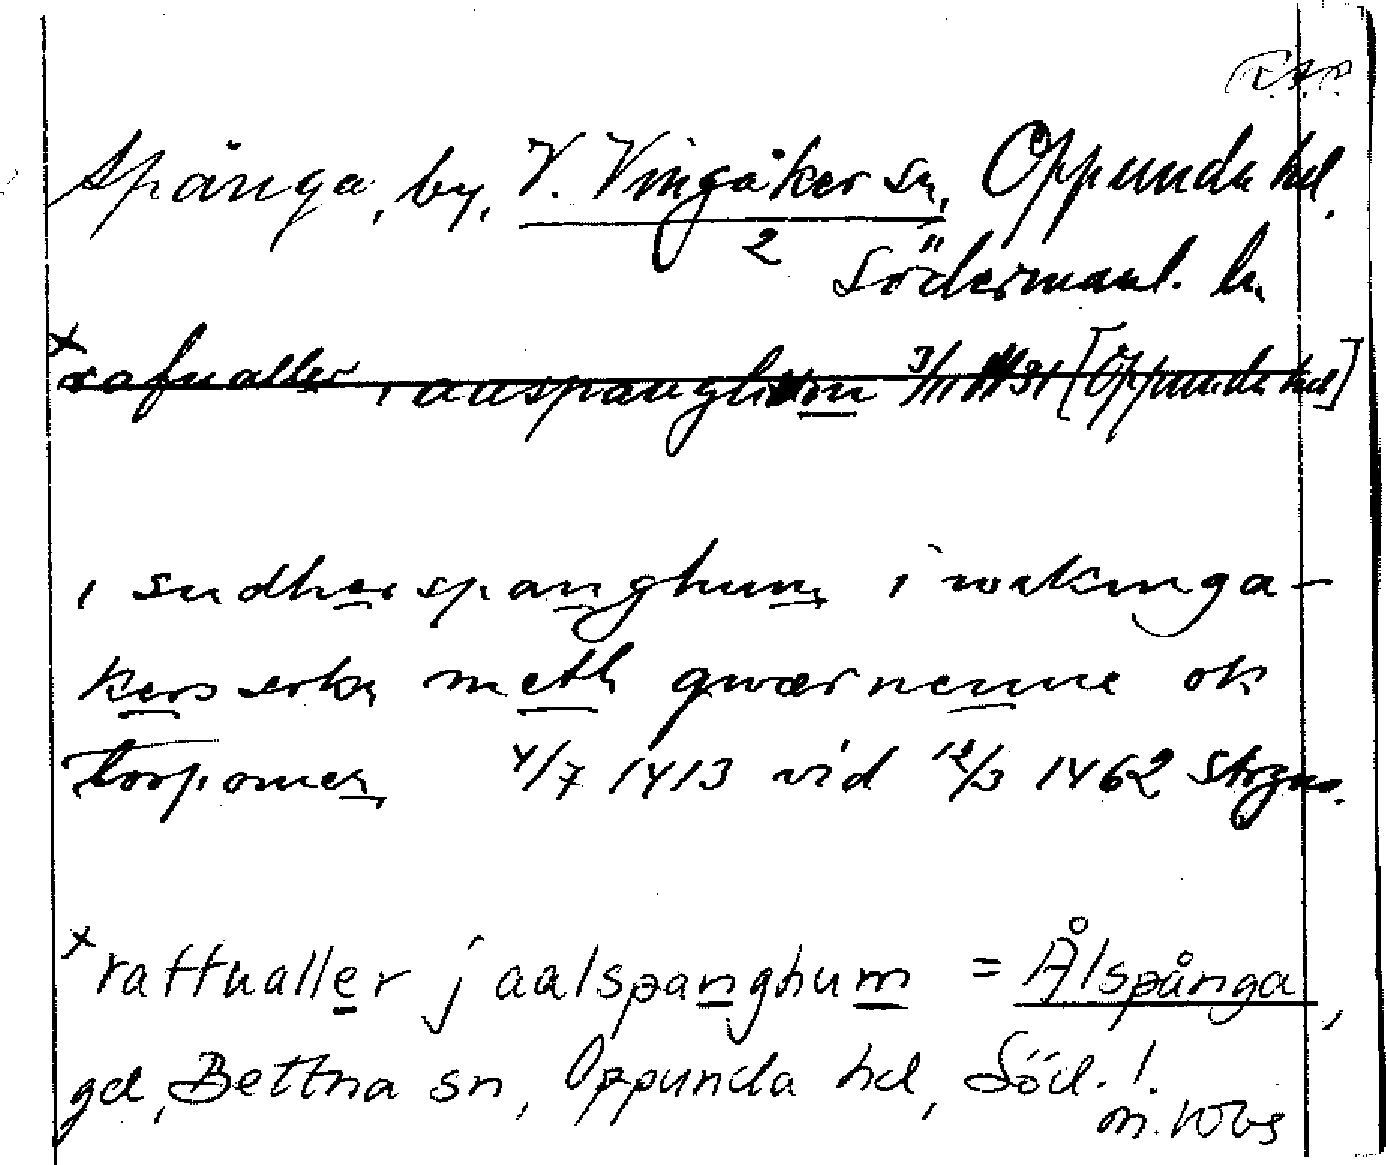 R.A.P.
Spånga, by, V. Vingåker sn, Oppunda hd.
2
Södermanl. l.
x
rafualler, aaspanghum 3/11 31 [Oppunda hd]
i sudherspanghum i wikinga-
kers sokn meth qwærnenne ok
torpomen 4/7 1413 vid 12/3 1462 Strgns.
x raffualler j aalspanghum = Ålspånga,
gd, Bettna sn, Oppunda hd, Söd. !.